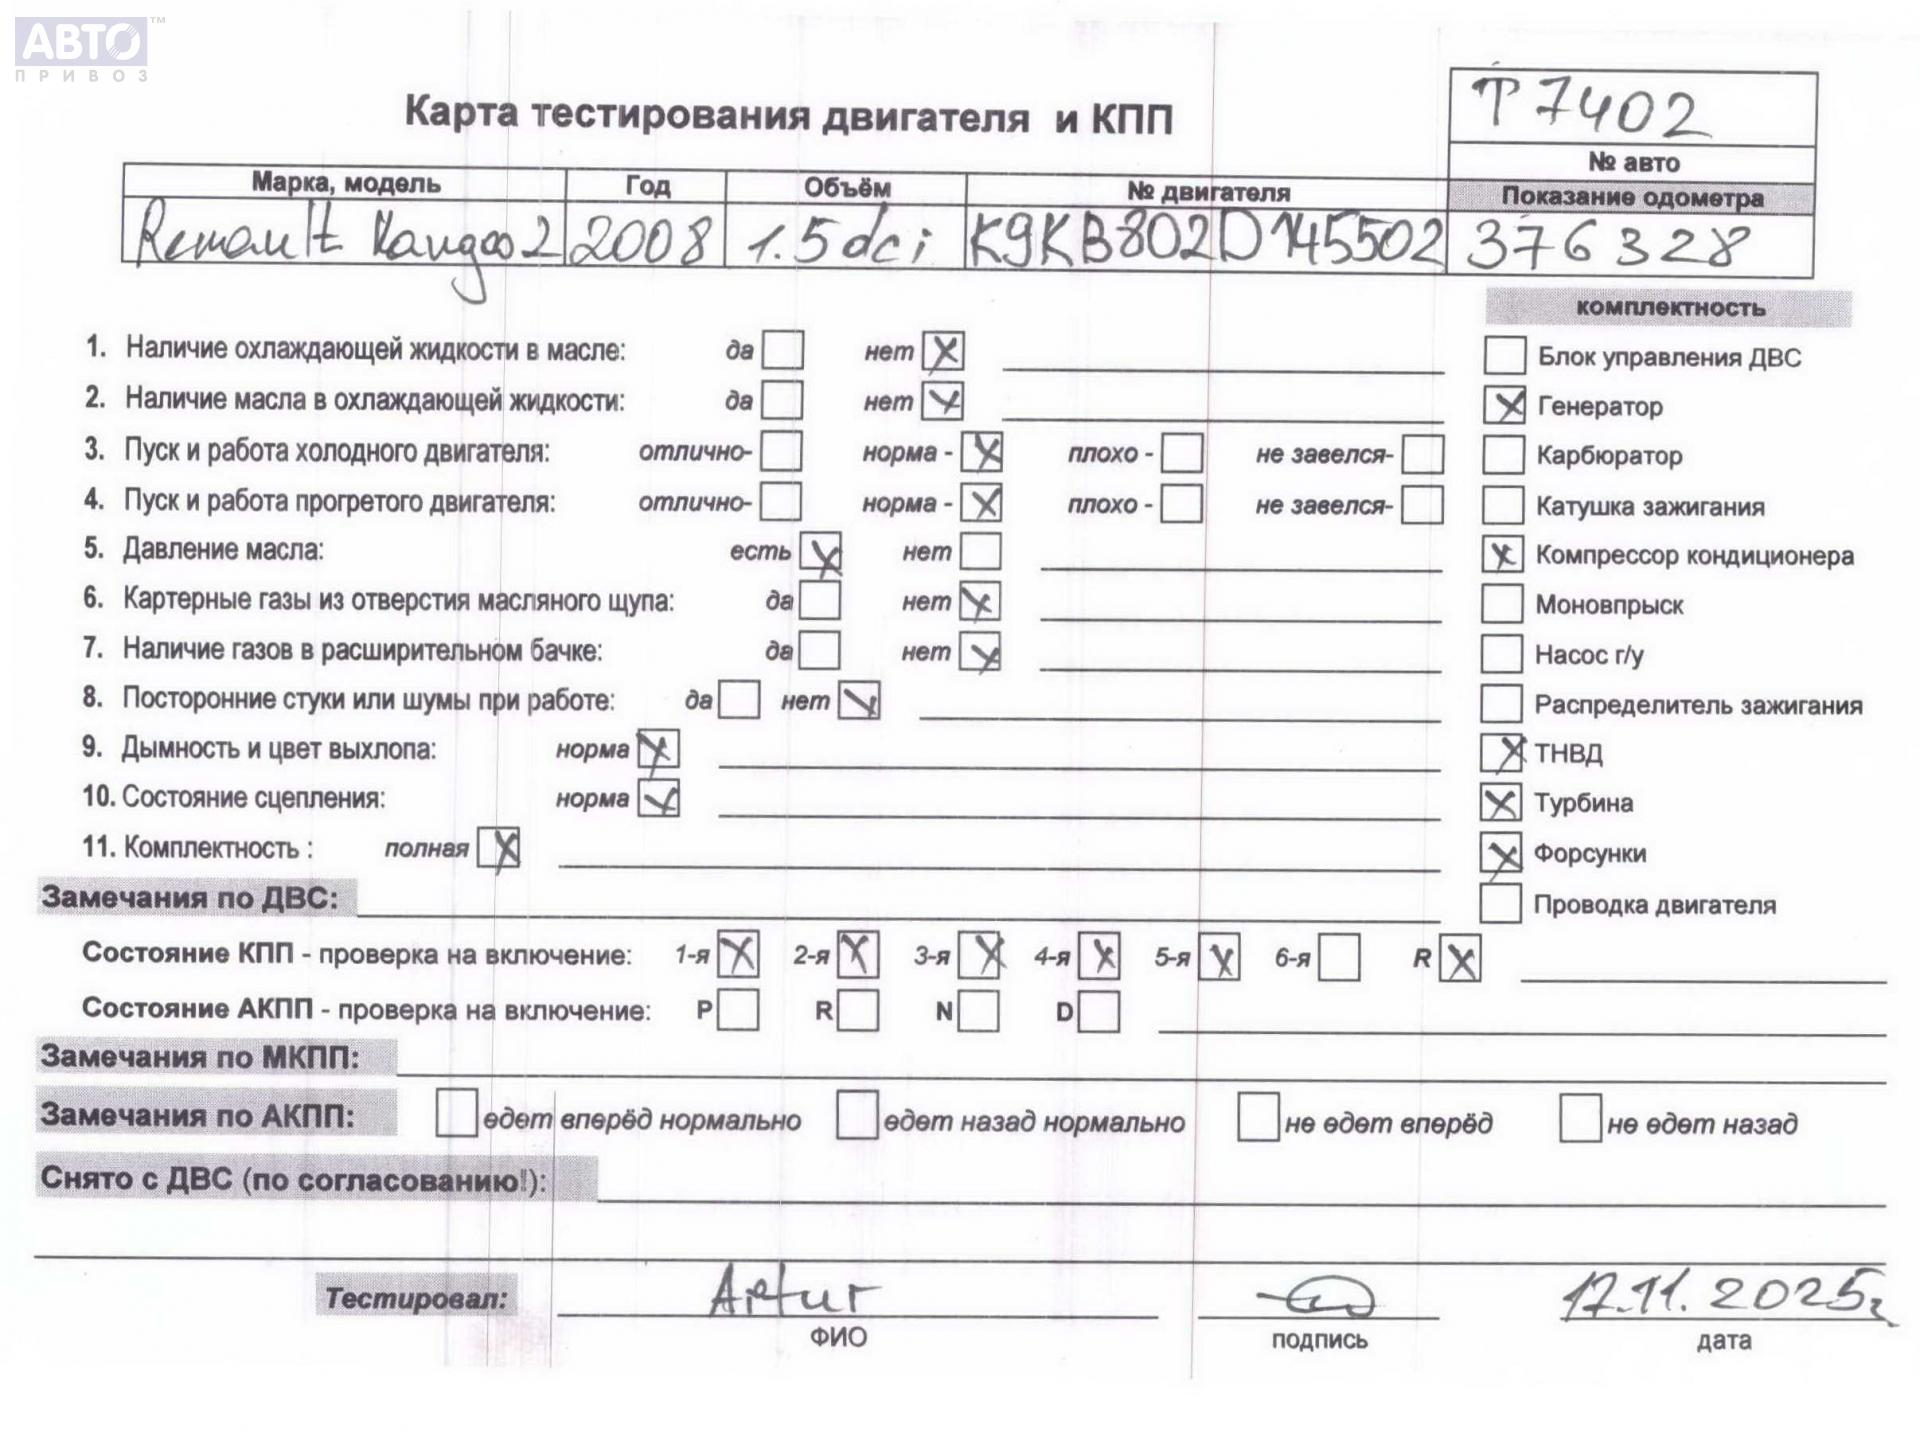 АВТО™
ПРИВОЗ
Карта тестирования двигателя и КПП
T7402
№ авто
Марка, модель Год Объём № двигателя Показание одометра
Renault Kangoo2 2008 1.5dci K9KB802D145502 376328
комплектность
1. Наличие охлаждающей жидкости в масле: да нет Блок управления ДВС
2. Наличие масла в охлаждающей жидкости: да нет Генератор
3. Пуск и работа холодного двигателя: отлично- норма - плохо - не завелся- Карбюратор
4. Пуск и работа прогретого двигателя: отлично- норма - плохо - не завелся- Катушка зажигания
5. Давление масла: есть нет Компрессор кондиционера
6. Картерные газы из отверстия масляного щупа: да нет Моновпрыск
7. Наличие газов в расширительном бачке: да нет Насос г/у
8. Посторонние стуки или шумы при работе: да нет Распределитель зажигания
9. Дымность и цвет выхлопа: норма ТНВД
10. Состояние сцепления: норма Турбина
11. Комплектность : полная Форсунки
Замечания по ДВС: Проводка двигателя
Состояние КПП - проверка на включение: 1-я 2-я 3-я 4-я 5-я 6-я R
Состояние АКПП - проверка на включение: P R N D
Замечания по МКПП:
Замечания по АКПП: едет вперёд нормально едет назад нормально не едет вперёд не едет назад
Снято с ДВС (по согласованию!):
Тестировал: Artur 17.11.2025г
ФИО подпись дата